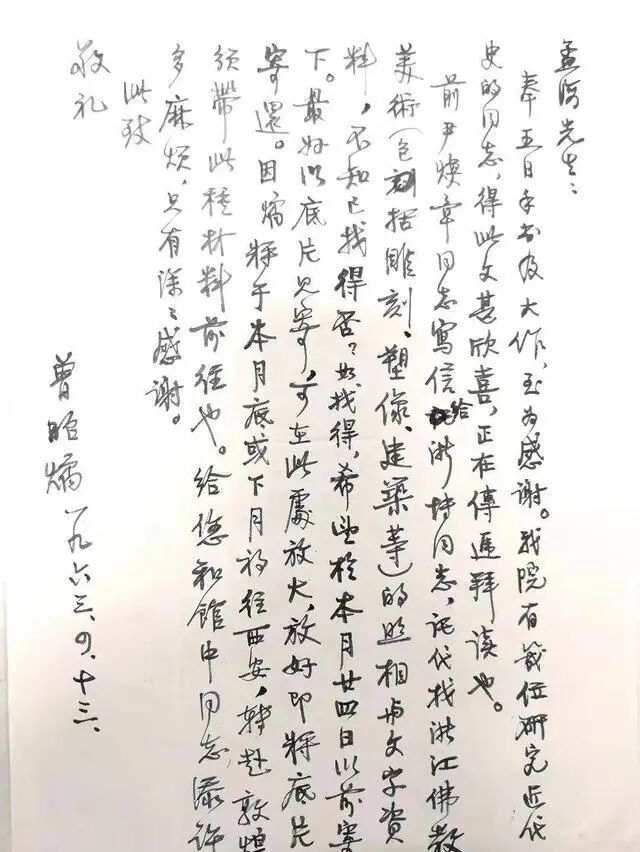 孟海先生：
奉五日手书及大作，至为感谢。我院有几位研究近代
史的同志，得此文甚欣喜，正在传递拜读也。
前尹焕章同志写信给浙博同志，託代找浙江佛教
美術（包括雕刻、塑像、建築等）的照相与文字资
料，不知已找得否？如找得，希望於本月廿四日以前寄
下。最好以底片见寄，可在此處放大，放好即将底片
寄還。因燏将于本月底或下月初往西安，转赴敦煌
须带此種材料前往也。给您和館中同志添许
多麻烦，只有深深感谢。
此致
敬礼
曾昭燏 一九六三、四、十三、